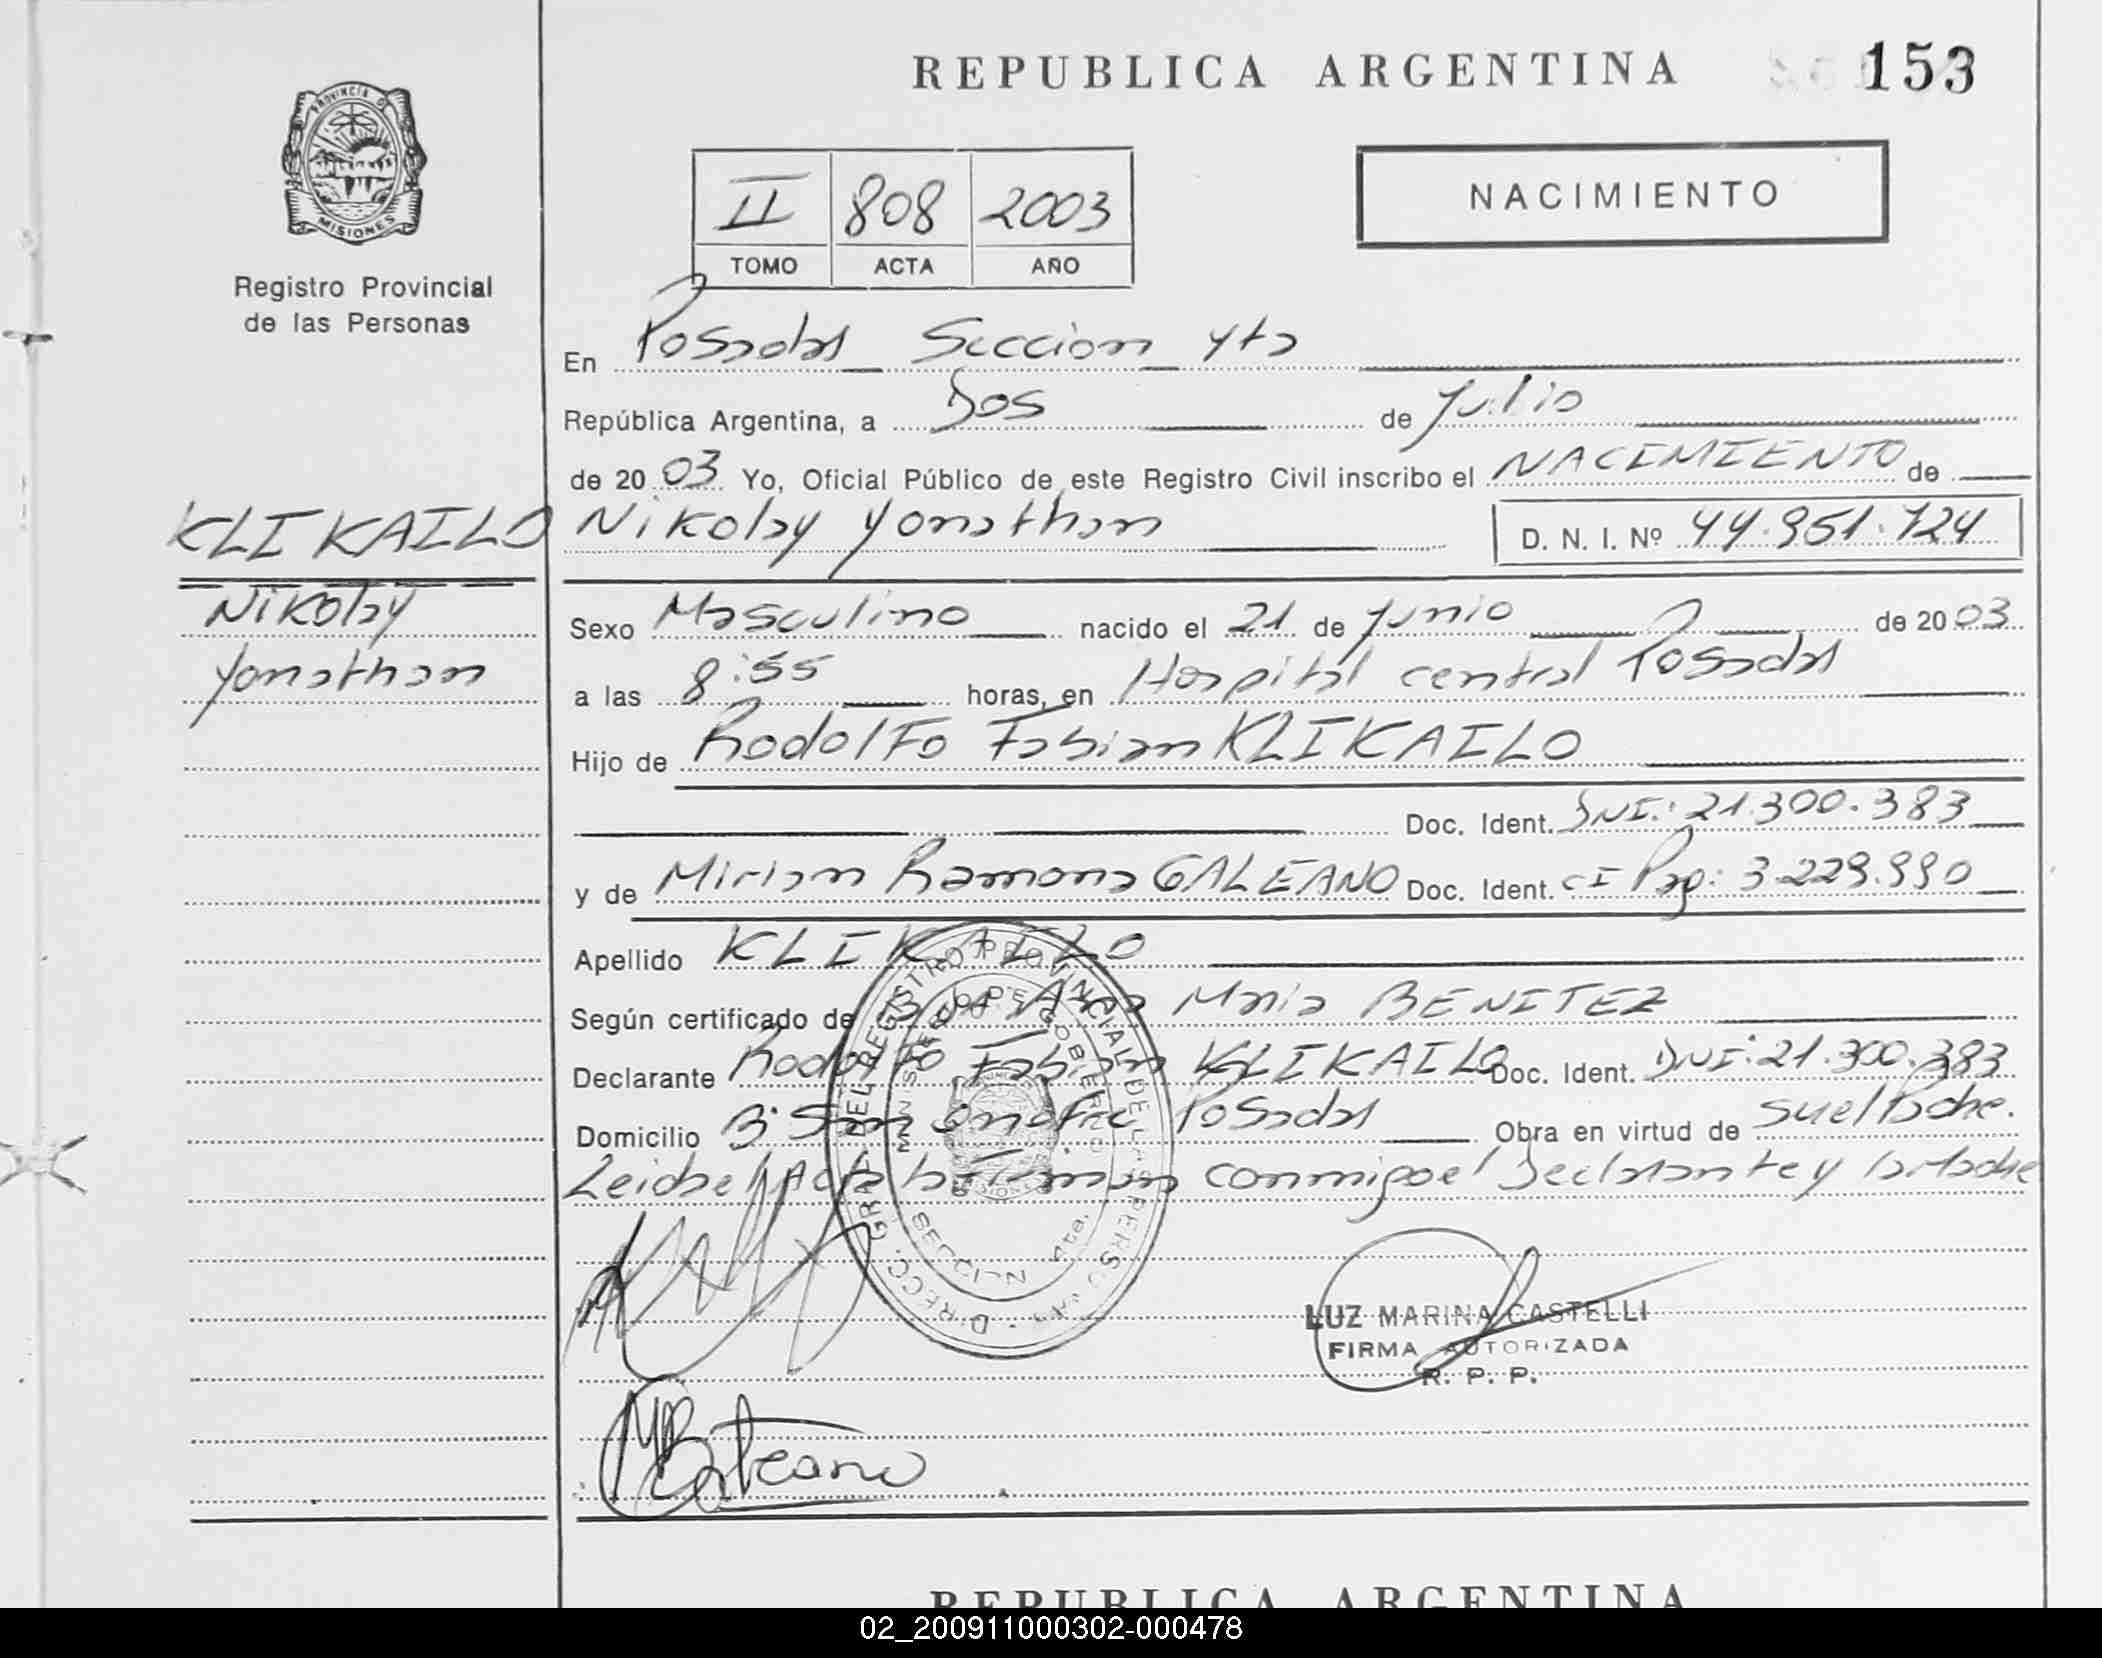 REPUBLICA ARGENTINA 153
PROVINCIA D
MISIONES
Registro Provincial
de las Personas
II 808 2003
TOMO ACTA AÑO
NACIMIENTO
En Posadas Seccion 4ta
República Argentina, a Dos de Julio
de 2003 Yo, Oficial Público de este Registro Civil inscribo el NACIMIENTO de
KLIKAILO Nikolay Yonathan D. N. I. Nº 44.951.724
Nikolay
Yonathan
Sexo Masculino nacido el 21 de Junio de 2003
a las 8:55 horas, en Hospital central Posadas
Hijo de Rodolfo Fabian KLIKAILO
Doc. Ident. DNI: 21.300.383
y de Miriam Ramona GALEANO Doc. Ident. CI Pag: 3.229.990
Apellido KLIKAILO
Según certificado de Ana Maria BENITEZ
Declarante Rodolfo Fabian KLIKAILO Doc. Ident. DNI: 21.300.383
Domicilio B: San Onofre Posadas Obra en virtud de su el Padre.
Leida el Acta la firman conmigo el Declarante y la Madre
DIRECC. GRAL. DEL REGISTRO PROVINCIAL DE LAS PERSONAS
MINISTERIO DE GOBIERNO
SECCION 4ta.
LUZ MARINA CASTELLI
FIRMA AUTORIZADA
R. P. P.
Galeano
REPUBLICA ARGENTINA
02_200911000302-000478